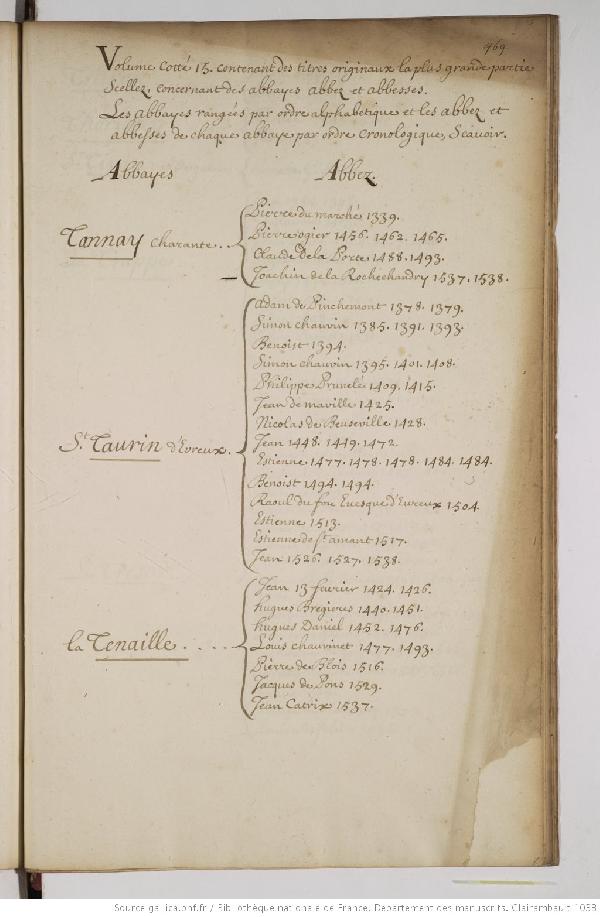 469
Volume Cotté 15. contenant des titres originaux la plus grande partie
Scellez, concernant des abbayes abbez et abbesses.
Les abbayes rangées par ordre alphabetique et les abbez et
abbesses de chaque abbaye par ordre Cronologique, Scavoir.
Abbayes Abbez
Tannay Charante
Pierre du marché 1339.
Pierre ogier 1456. 1462. 1465.
Claude de la Porte 1488. 1493.
Joachin de la Rochechandry 1537. 1538.
St. Taurin d'Evreux.
Adam de Pinchemont 1378. 1379.
Simon chauvin 1385. 1391. 1393.
Benoist 1394.
Simon chauvin 1395. 1401. 1408.
Philippe Prunelé 1409. 1415.
Jean de maville 1425.
Nicolas de Beuseville 1428.
Jean 1448. 1449. 1472.
Estienne 1477. 1478. 1478. 1484. 1484.
Benoist 1494. 1494.
Raoul du fou Evesque d'Evreux 1504.
Estienne 1513.
Estienne de St. amant 1517.
Jean 1526. 1527. 1538.
la Tenaille
Jean 13 fevrier 1424. 1426.
hugues Bregieres 1440. 1451.
hugues Daniel 1452. 1476.
Louis chauvinet 1477. 1493.
Pierre de Blois 1516.
Jacques de Pons 1529.
Jean Catrix 1537.
Source gallica.bnf.fr / Bibliothèque nationale de France. Département des manuscrits. Clairambault 1038